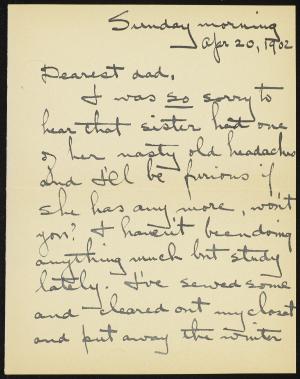 Sunday morning
Apr 20, 1902
Dearest dad,
I was so sorry to
hear that sister had one
of her nasty old headaches
and I'll be furious if
she has any more, won't
you? I haven't been doing
anything much but study
lately. I've sewed some
and cleared out my closet
and put away the winter